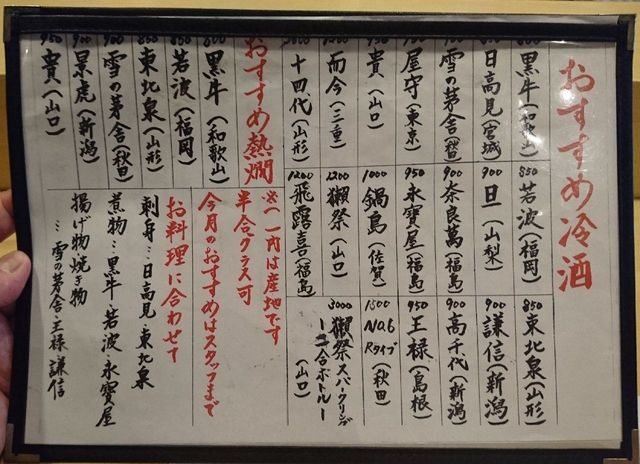 おすすめ冷酒
黒牛(和歌山)
日高見(宮城)
雪の茅舎(秋田)
屋守(東京)
貴(山口)
而今(三重)
十四代(山形)
850 若波(福岡)
900 旦(山梨)
900 奈良萬(福島)
950 永寶屋(福島)
1000 鍋島(佐賀)
1200 獺祭(山口)
1200 飛露喜(福島)
850 東北泉(山形)
900 謙信(新潟)
900 高千代(新潟)
950 王禄(島根)
1500 No.6 Rタイプ(秋田)
3000 獺祭スパークリング
ー二合ボトルー
(山口)
おすすめ熱燗
800 黒牛(和歌山)
850 若波(福岡)
850 東北泉(山形)
900 雪の茅舎(秋田)
900 景虎(新潟)
950 貴(山口)
※( )内は産地です
半合グラス可
今月のおすすめはスタッフまで
お料理に合わせて
刺身…日高見・東北泉
煮物…黒牛・若波・永寶屋
揚げ物焼き物
…雪の茅舎・王禄・謙信